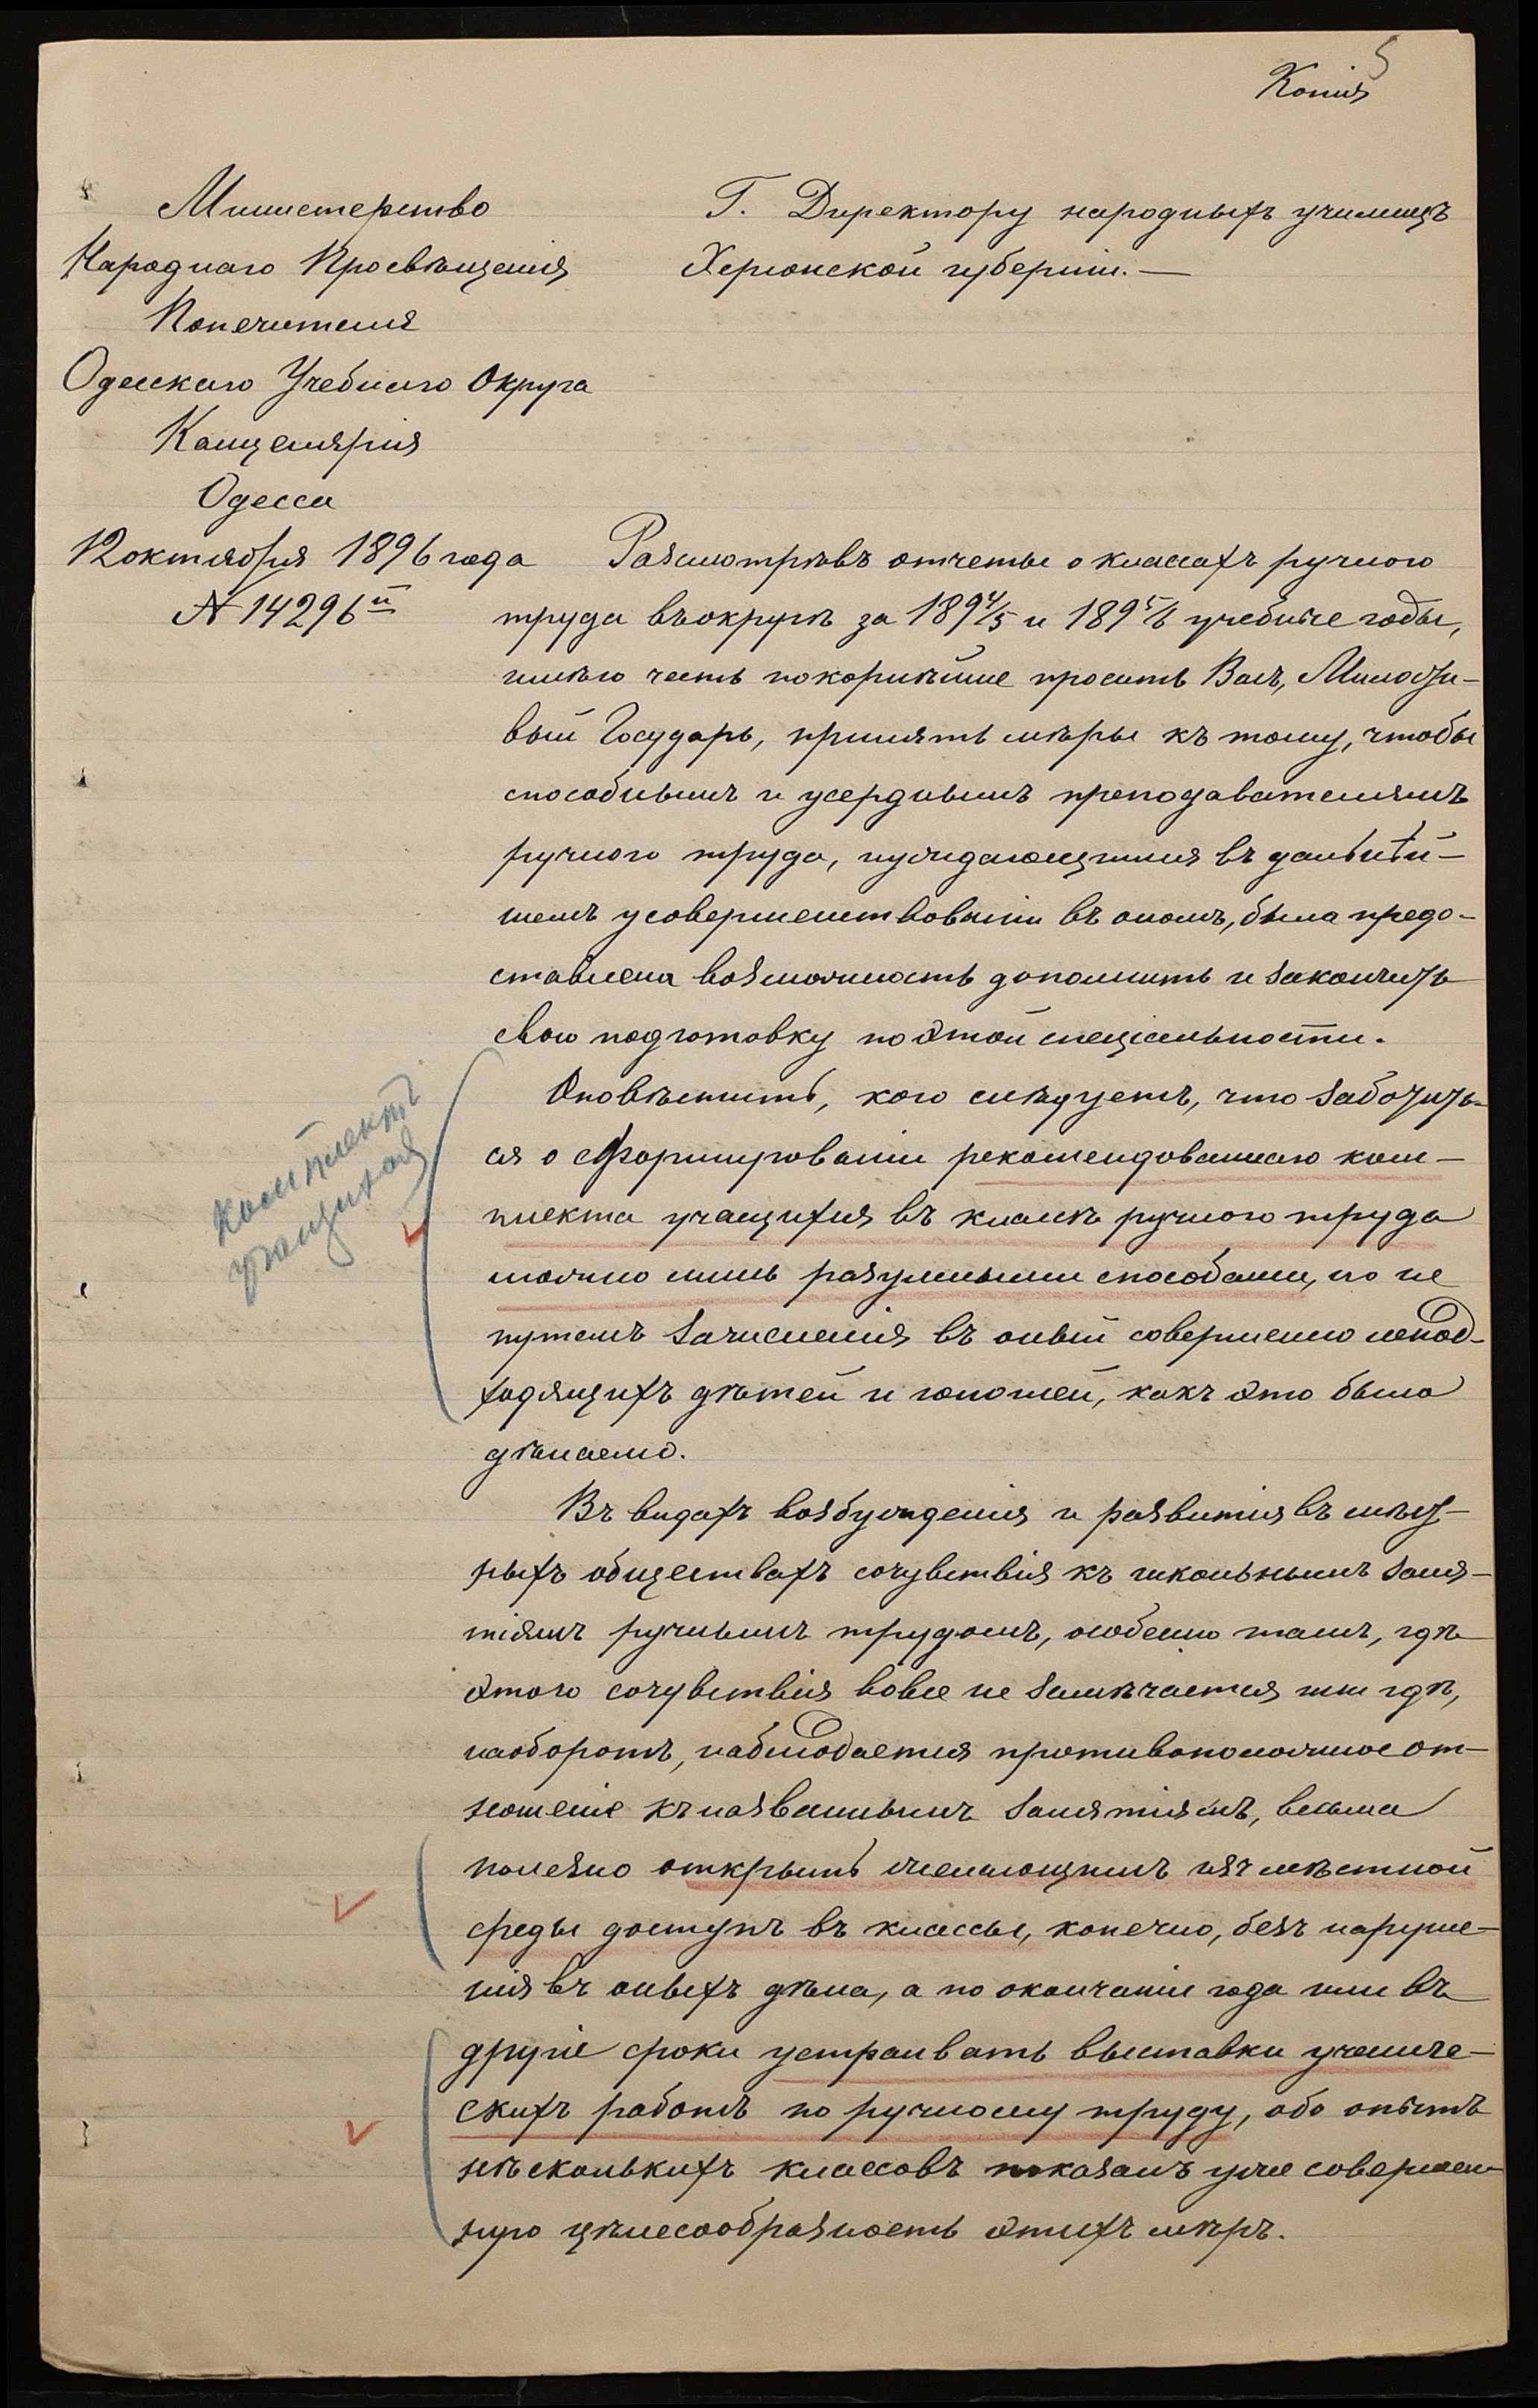 5
Копія
Министерство
Народнаго Просвѣщенія
Попечителя
Одесскаго Учебнаго Округа
Канцелярія
Одесса
12 октября 1896 года
№ 14296й
Г. Директору народныхъ училищъ
Херсонской губерніи. —
Разсмотрѣвъ отчеты о классахъ ручного
труда въ округѣ за 1894/5 и 1895/6 учебные годы,
имѣю честь покорнѣйше просить Васъ, Милости-
вый Государь, принять мѣры къ тому, чтобы
способнымъ и усерднымъ преподавателямъ
ручного труда, нуждающимся въ дальнѣй-
шемъ усовершенствованіи въ ономъ, была предо-
ставлена возможность дополнить и закончить
свою подготовку по этой спеціальности.
Оповѣстить, кого слѣдуетъ, что заботить-
ся о сформированіи рекомендованнаго ком-
плекта учащихся въ классѣ ручного труда
можно лишь разумными способами, но не
путемъ зачисленія въ оный совершенно непод-
ходящихъ дѣтей и юношей, какъ это было
дѣлаемо.
комплектъ
учащихся
Въ видахъ возбужденія и развитія въ мѣст-
ныхъ обществахъ сочувствія къ школьнымъ заня-
тіямъ ручнымъ трудомъ, особенно тамъ, гдѣ
этого сочувствія вовсе не замѣчается или гдѣ,
наоборотъ, наблюдается противоположное от-
ношеніе къ названнымъ занятіямъ, весьма
полезно открыть желающимъ изъ мѣстной
среды доступъ въ классы, конечно, безъ наруше-
нія въ оныхъ дѣла, а по окончаніи года или въ
другіе сроки устраивать выставки учениче-
скихъ работъ по ручному труду, ибо опытъ
нѣсколькихъ классовъ показалъ уже совершен-
ную цѣлесообразность этихъ мѣръ.